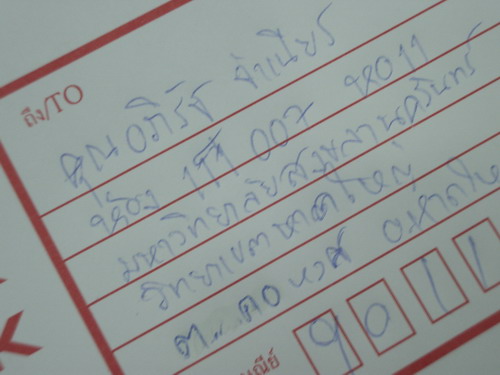 ถึง/TO
คุณอภิรัช จำเนียร
ห้อง 007 หอ 11
มหาวิทยาลัยสงขลานครินทร์
วิทยาเขตหาดใหญ่
ต. คอหงส์ อ.หาดให
9011